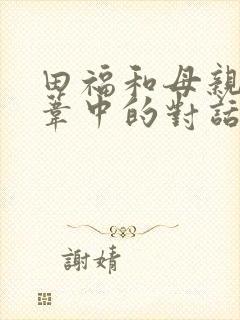 田福和母親
葦中的對話
謝婧